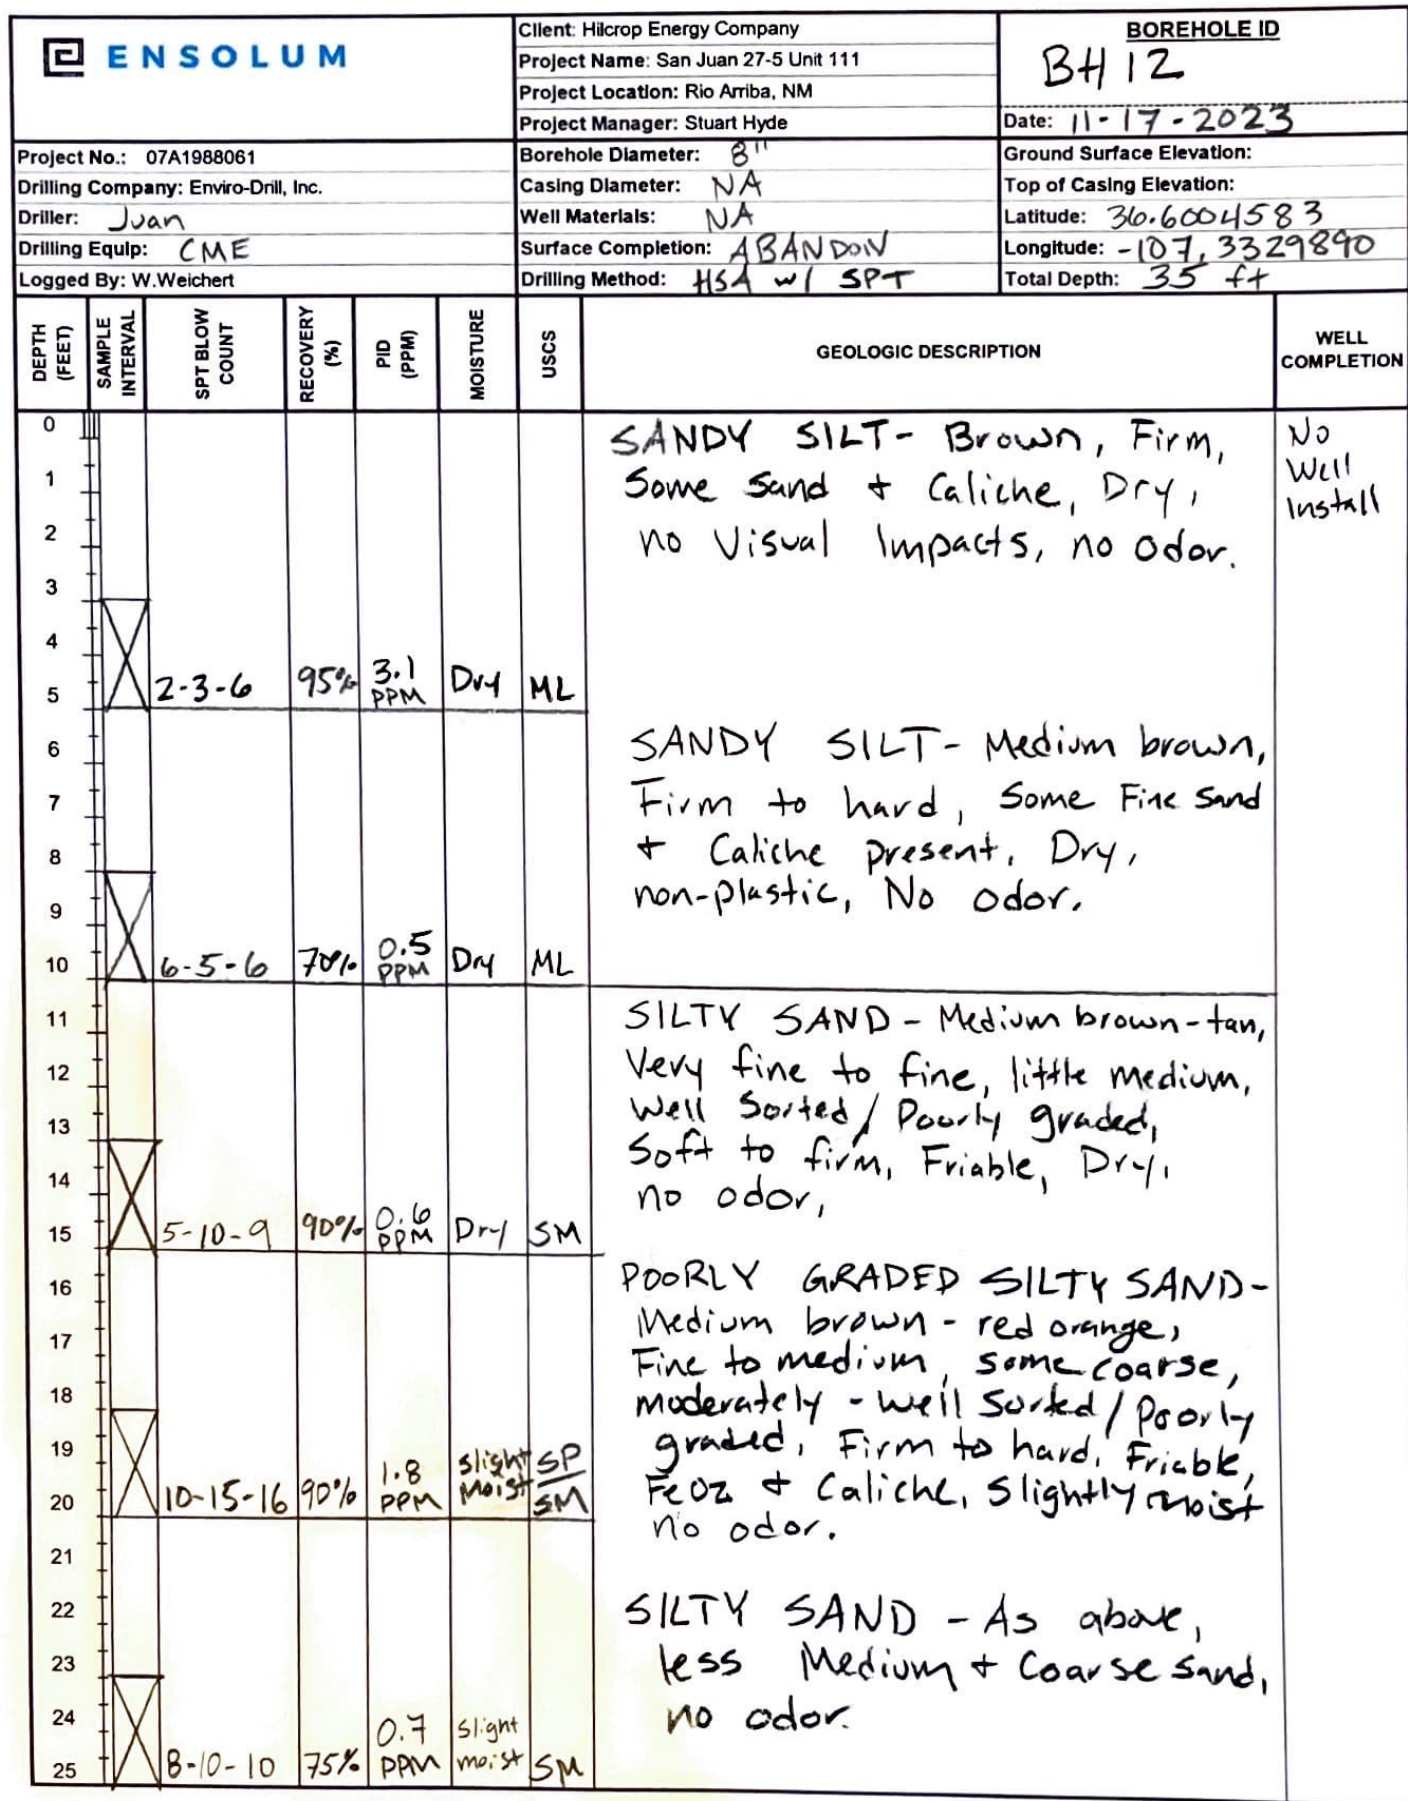 ENSOLUM
Client: Hilcrop Energy Company
Project Name: San Juan 27-5 Unit 111
Project Location: Rio Arriba, NM
Project Manager: Stuart Hyde
BOREHOLE ID
BH 12
Date: 11-17-2023
Project No.: 07A1988061
Drilling Company: Enviro-Drill, Inc.
Driller: Juan
Drilling Equip: CME
Logged By: W.Weichert
Borehole Diameter: 8"
Casing Diameter: NA
Well Materials: NA
Surface Completion: ABANDON
Drilling Method: HSA w/ SPT
Ground Surface Elevation:
Top of Casing Elevation:
Latitude: 36.6004583
Longitude: -107.3329890
Total Depth: 35 ft
DEPTH (FEET)
SAMPLE INTERVAL
SPT BLOW COUNT
RECOVERY (%)
PID (PPM)
MOISTURE
USCS
GEOLOGIC DESCRIPTION
WELL COMPLETION
0
1
2
3
4
5
2-3-6 95% 3.1 PPM Dry ML
SANDY SILT- Brown, Firm,
Some Sand + Caliche, Dry,
no Visual Impacts, no odor.
No
Well
Install
6
7
8
9
10
6-5-6 70% 0.5 PPM Dry ML
SANDY SILT- Medium brown,
Firm to hard, Some Fine Sand
+ Caliche present, Dry,
non-plastic, No odor.
11
12
13
14
15
5-10-9 90% 0.6 PPM Dry SM
SILTY SAND - Medium brown-tan,
Very fine to fine, little medium,
Well Sorted/Poorly graded,
Soft to firm, Friable, Dry,
no odor,
16
17
18
19
20
10-15-16 90% 1.8 PPM Slight Moist SP/SM
POORLY GRADED SILTY SAND-
Medium brown - red orange,
Fine to medium, some coarse,
moderately - well Sorted/Poorly
graded, Firm to hard, Friable,
FeO2 + Caliche, Slightly moist
no odor.
21
22
23
24
25
8-10-10 75% 0.7 PPM Slight moist SM
SILTY SAND - As above,
less Medium + Coarse sand,
no odor.